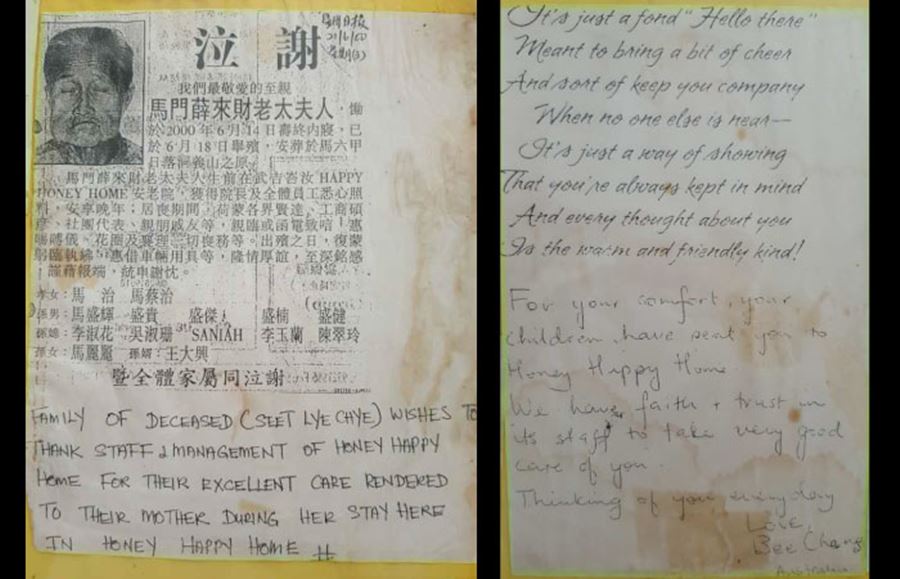 21/6/00
泣 謝
我們最敬愛的至親
馬門薛來財老太夫人，慟
於2000年6月14日壽終內寢，已
於6月18日舉殯，安葬於馬六甲
日落洞義山之原。
馬門薛來財老太夫人生前在武吉峇汝 HAPPY
HONEY HOME 安老院，獲得院長及全體員工悉心照
料，安享晚年；居喪期間，荷蒙各界賢達、工商碩
彥、社團代表、親朋戚友等，親臨或函電致唁！惠
賜賻儀、花圈及襄理一切喪務等。出殯之日，復蒙
躬臨執紼，惠借車輛用具等，隆情厚誼，至深銘感
謹藉報端，統申謝忱。
孝女：馬 治 馬蔡治
孫男：馬盛輝 盛貴 盛傑 盛楠 盛健
孫媳：李淑花 吳淑珊 SANIAH 李玉蘭 陳翠玲
孫女：馬麗麗 孫婿：王大興
暨全體家屬同泣謝
FAMILY OF DECEASED (SEET LYE CHYE) WISHES TO
THANK STAFF & MANAGEMENT OF HONEY HAPPY
HOME FOR THEIR EXCELLENT CARE RENDERED
TO THEIR MOTHER DURING HER STAY HERE
IN HONEY HAPPY HOME #
It's just a fond "Hello there"
Meant to bring a bit of cheer
And sort of keep you company
When no one else is near—
It's just a way of showing
That you're always kept in mind
And every thought about you
Is the warm and friendly kind!
For your comfort, your
children have sent you to
Honey Happy Home
We have faith + trust in
its staff to take very good
care of you.
Thinking of you everyday
Love,
Bee Chang
Australia